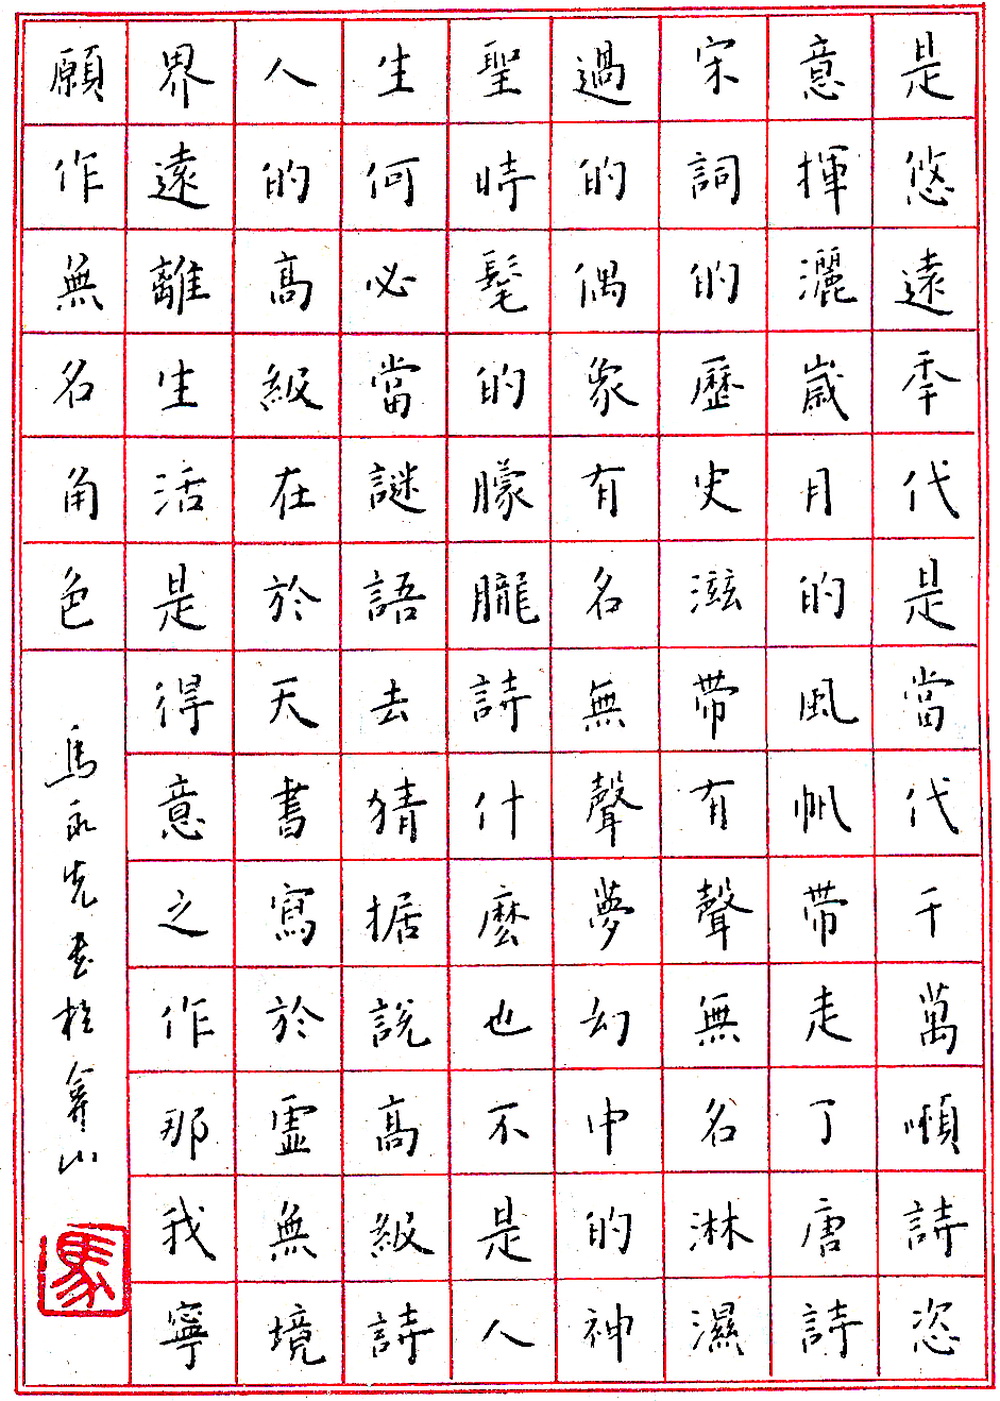 是悠遠秊代是當代千萬順詩恣
意揮灑歲月的風帆帶走了唐詩
宋詞的歷史滋帶有聲無名淋濕
過的偶象有名無聲夢幻中的神
聖時髦的朦朧詩什麼也不是人
生何必當謎語去猜据說高級詩
人的高級在於天書寫於虛無境
界遠離生活是得意之作那我寧
願作無名角色
馬永先书於弇山
馬